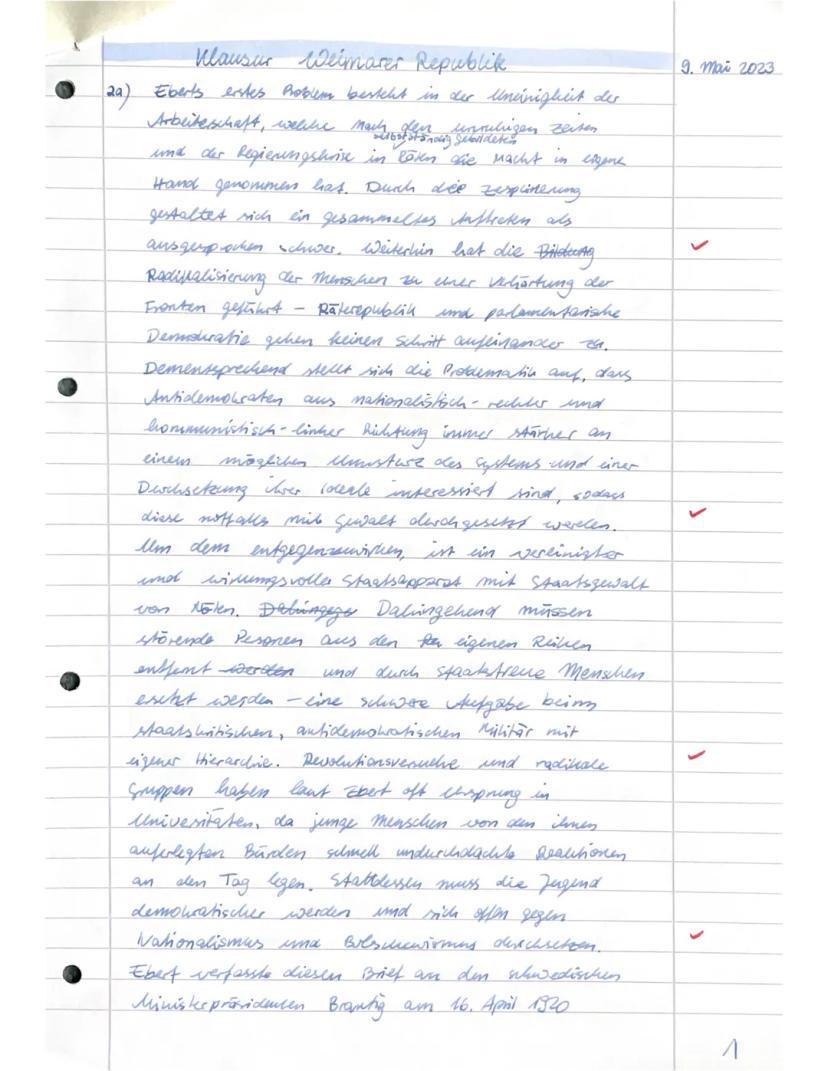 Klausur Weimarer Republik 9. Mai 2023
2a) Eberts erstes Problem besteht in der Uneinigkeit der
Arbeiterschaft, welche nach den unruhigen Zeiten
selbstständig gebildeten
und der Regierungskrise in Räten die Macht in eigene
Hand genommen hat. Durch die Zersplitterung
gestaltet sich ein gesammeltes Auftreten als
ausgesprochen schwer. Weiterhin hat die Bildung
Radikalisierung der Menschen zu einer Verhärtung der
Fronten geführt – Räterepublik und parlamentarische
Demokratie gehen keinen Schritt aufeinander zu.
Dementsprechend stellt sich die Problematik auf, dass
Antidemokraten aus nationalistisch-rechter und
kommunistisch-linker Richtung immer stärker an
einem möglichen Umsturz des Systems und einer
Durchsetzung ihrer Ideale interessiert sind, sodass
diese notfalls mit Gewalt durchgesetzt werden.
Um dem entgegenzuwirken, ist ein vereinigter
und wirkungsvoller Staatsapparat mit Staatsgewalt
von Nöten. Dahingege Dahingehend müssen
störende Personen aus den eigenen Reihen
entfernt werden und durch staatstreue Menschen
ersetzt werden – eine schwere Aufgabe beim
staatskritischen, antidemokratischen Militär mit
eigener Hierarchie. Revolutionsversuche und radikale
Gruppen haben laut Ebert oft Ursprung in
Universitäten, da junge Menschen von den ihnen
auferlegten Bürden schnell undurchdachte Reaktionen
an den Tag legen. Stattdessen muss die Jugend
demokratischer werden und sich offen gegen
Nationalismus und Bolschewismus durchsetzen.
Ebert verfasste diesen Brief an den schwedischen
Ministerpräsidenten Branting am 16. April 1920
1